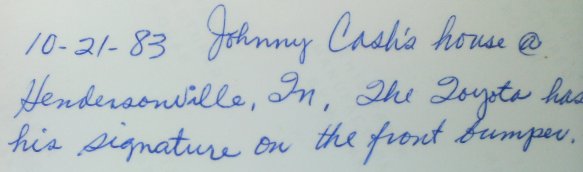 10-21-83 Johnny Cash's house @
Hendersonville, Tn, The Toyota has
his signature on the front bumper.